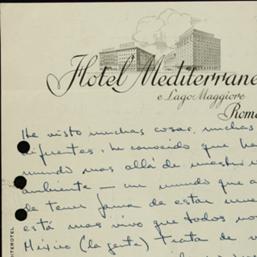 Hotel Mediterrane
e Lago Maggiore
Roma
He visto muchas cosas, muchas
diferentes, he conocido que hay
mundo mas allá de nuestro
ambiente — un mundo que a
de tener fama de estar
está mas vivo que todos
México (la gente) trata de